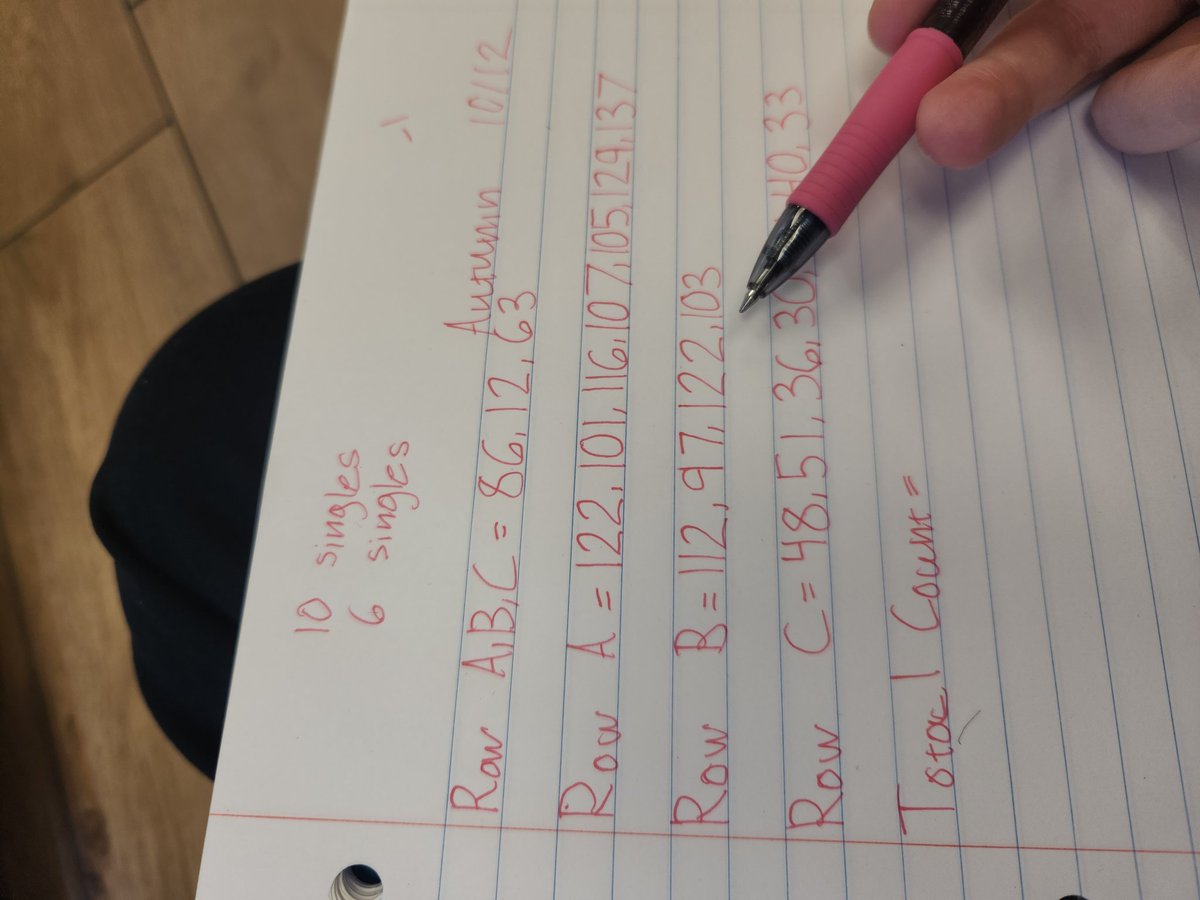 10 singles
6 singles
Autumn 10/12
Row A,B,C = 86,12,63
Row A = 122,101,116,107,105,129,137
Row B = 112,97,122,103
Row C = 48,51,36,30, 40,33
Total Count =